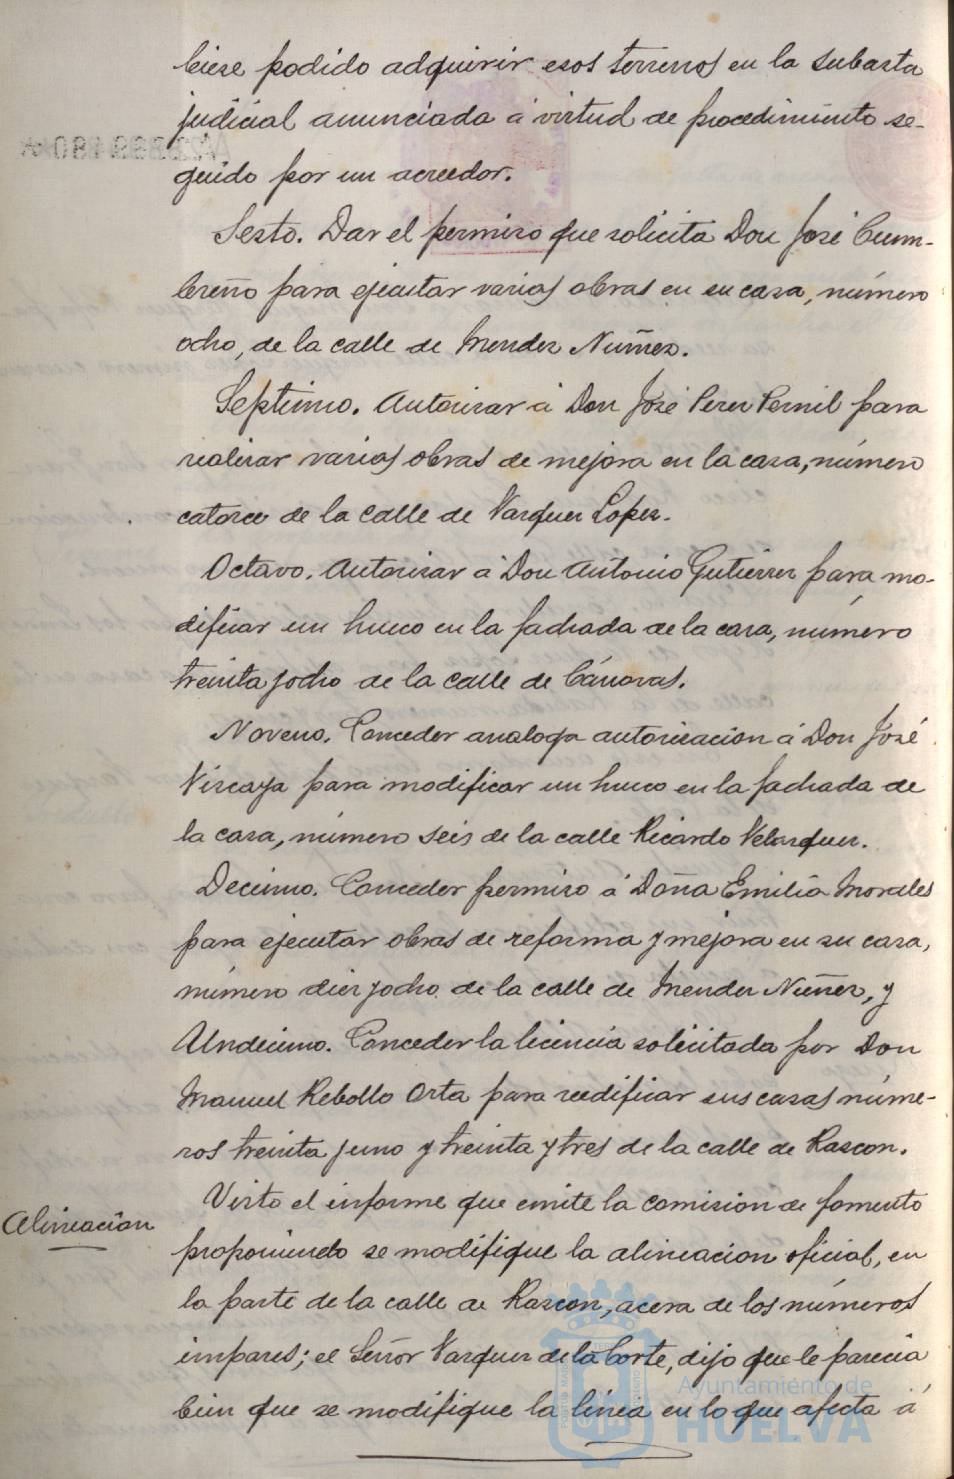 biese podido adquirir esos terrenos en la subasta
judicial anunciada á virtud de procedimiento se-
guido por un acreedor.
Sexto. Dar el permiso que solicita Don José Cum-
breño para ejecutar varias obras en su casa, número
ocho, de la calle de Mendez Nuñez.
Septimo. Autorizar á Don José Perez Pernil para
realizar varias obras de mejora en la casa, número
catorce de la calle de Vazquez Lopez.
Octavo. Autorizar á Don Antonio Gutierrez para mo-
dificar un hueco en la fachada de la casa, número
treinta y ocho de la calle de Cánovas.
Noveno. Conceder analoga autorizacion á Don José
Vizcaya para modificar un hueco en la fachada de
la casa, número seis de la calle Ricardo Velazquez.
Decimo. Conceder permiso á Doña Emilia Morales
para ejecutar obras de reforma y mejora en su casa,
número diez y ocho de la calle de Mendez Nuñez, y
Undecimo. Conceder la licencia solicitada por Don
Manuel Rebollo Orta para reedificar sus casas núme-
ros treinta y uno y treinta y tres de la calle de Rascon.
Alineacion
Visto el informe que emite la comision de fomento
proponiendo se modifique la alineacion oficial, en
la parte de la calle de Rascon, acera de los números
impares; el Señor Vazquez de la Corte, dijo que le parecia
bien que se modifique la línea en lo que afecta á
Ayuntamiento de
HUELVA